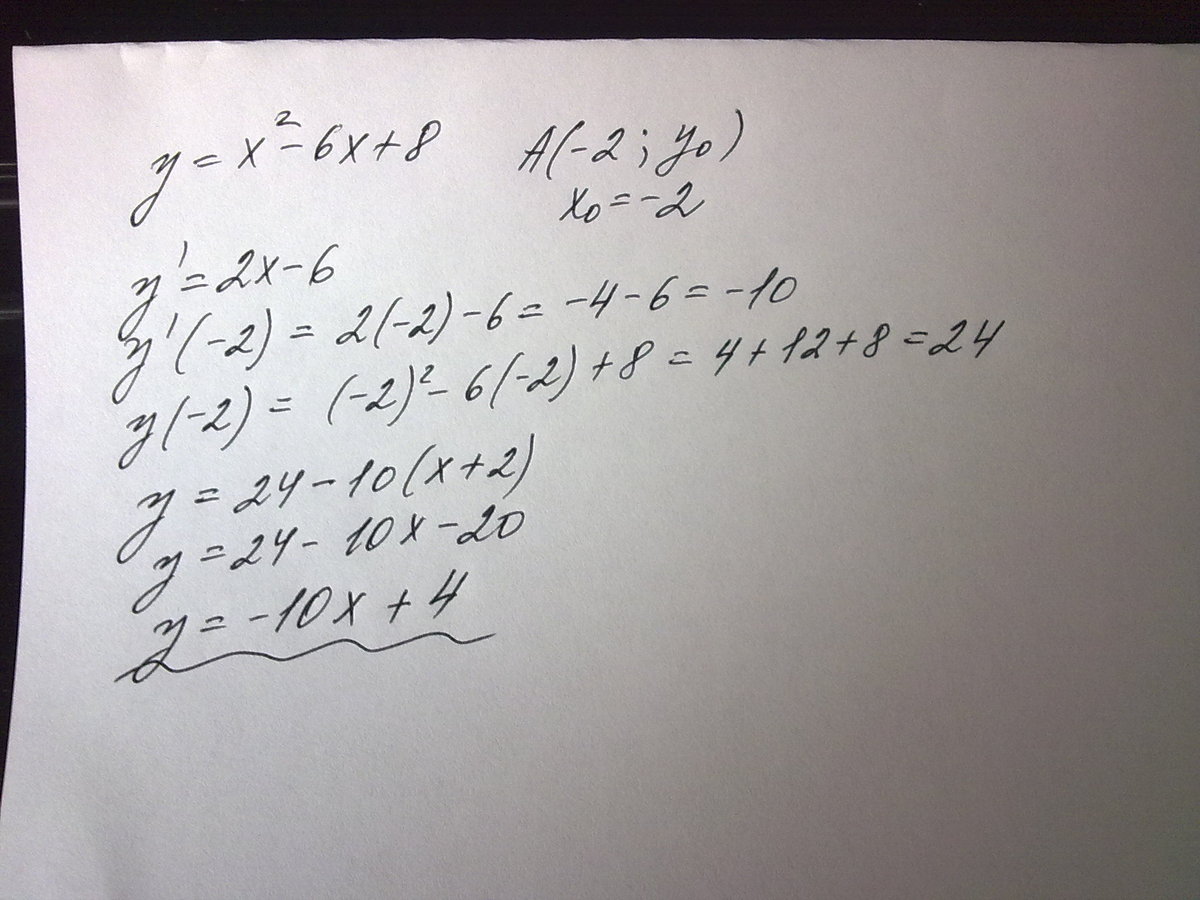 y = x² - 6x + 8 A(-2; y₀)
x₀ = -2
y' = 2x - 6
y'(-2) = 2(-2) - 6 = -4 - 6 = -10
y(-2) = (-2)² - 6(-2) + 8 = 4 + 12 + 8 = 24
y = 24 - 10(x + 2)
y = 24 - 10x - 20
y = -10x + 4